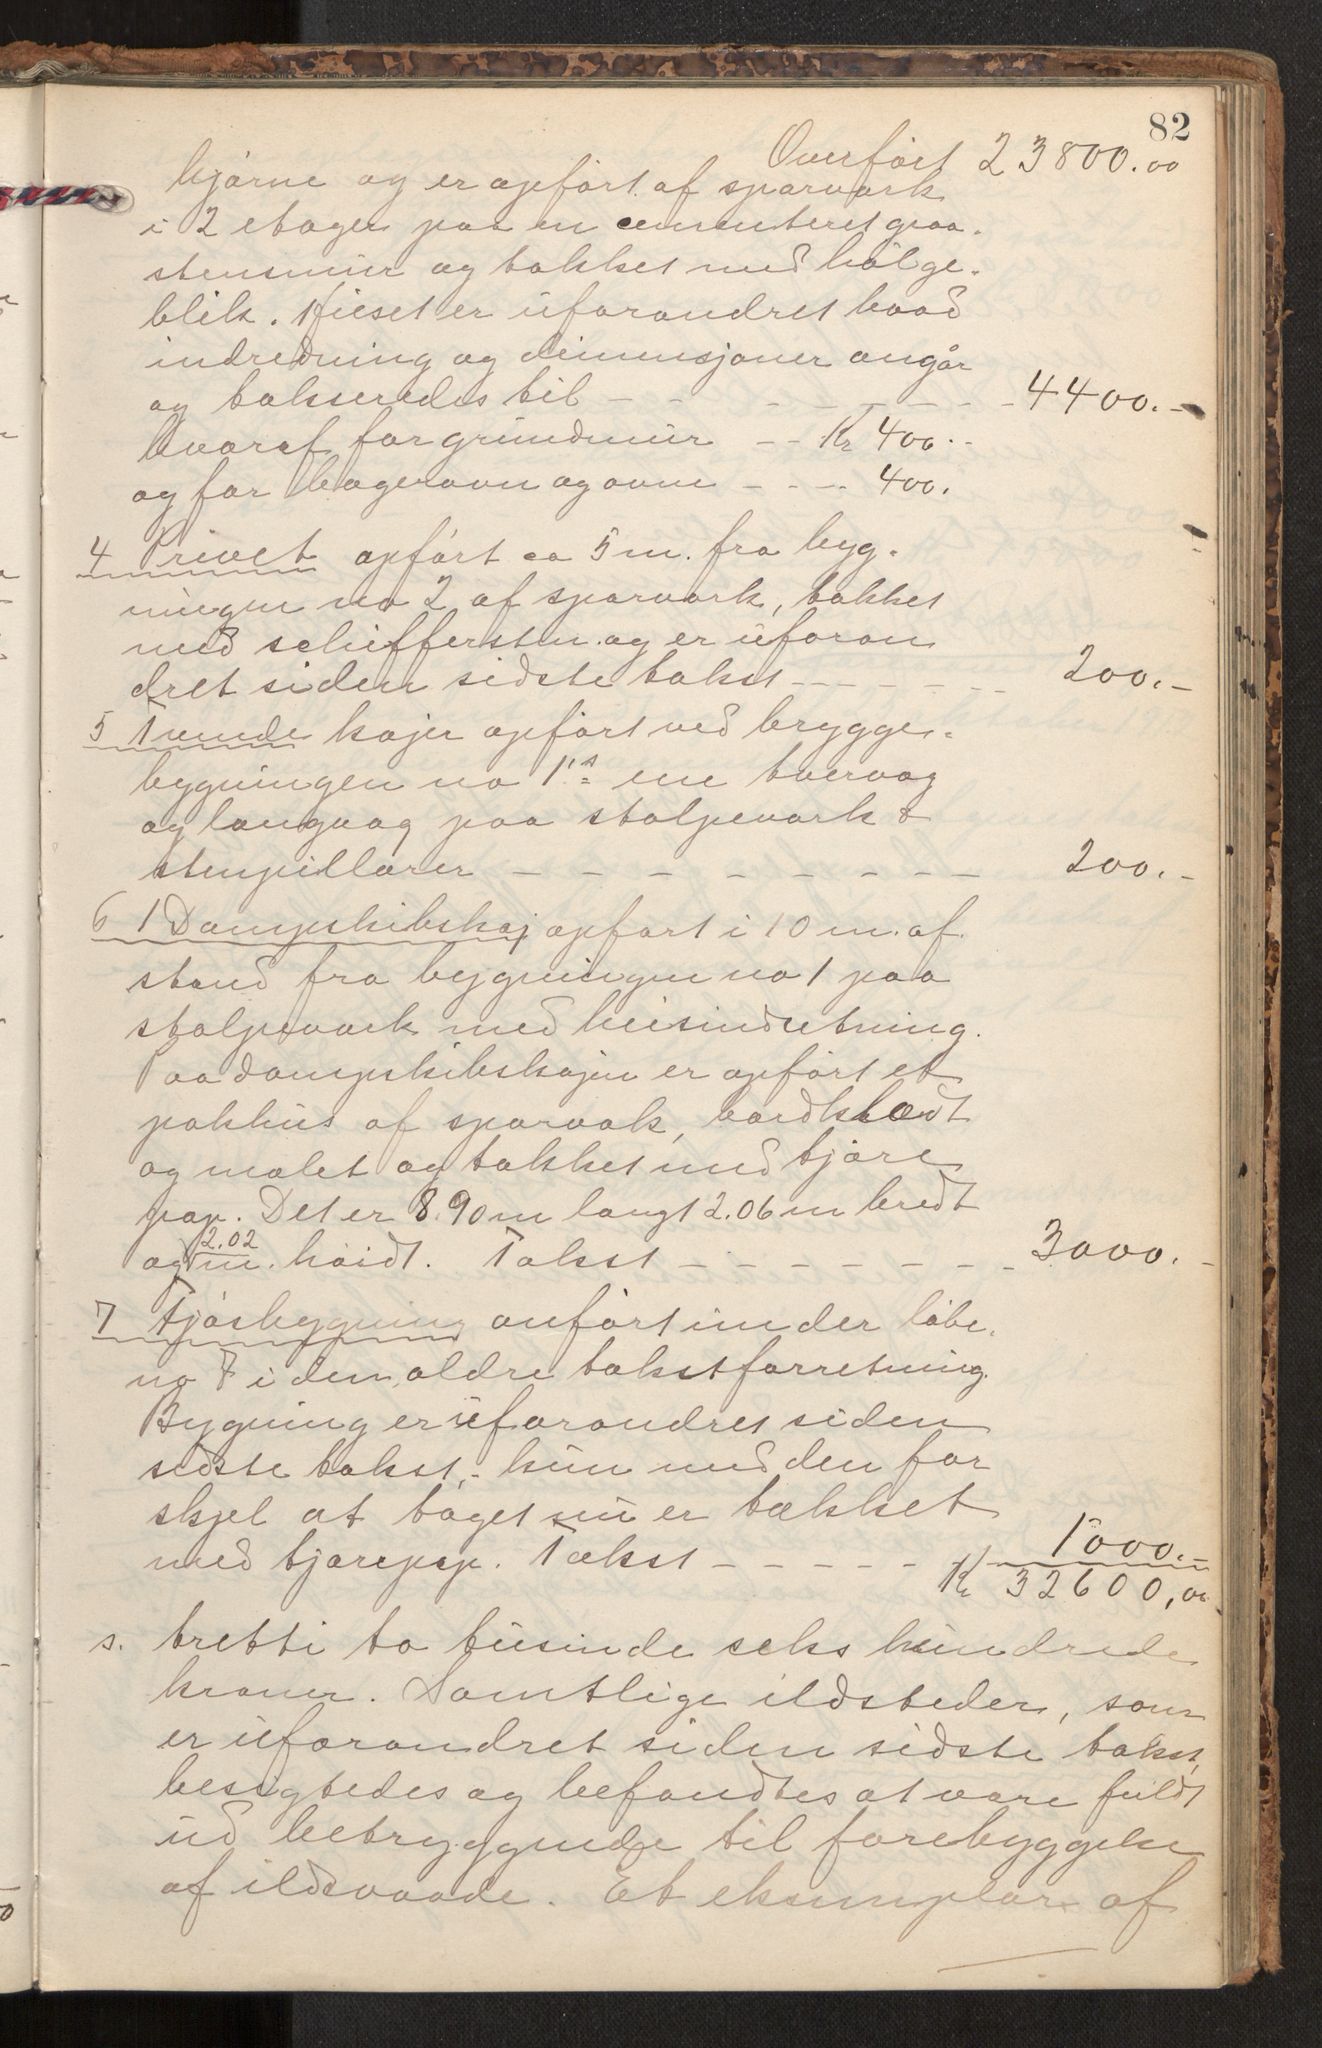 82
Overført 23800.00
hjørne og er opført af sparværk
i 2 etager paa en cementeret graa-
stensmur og tækket med bølge-
blik. Huset er uforandret hvad
indredning og dimensjoner angår
og takseredes til - - - - - - - - 4400.-
Hvoraf for grundmur - - Kr 400.-
og for bagerovn og ovne - - - - 400.
4 Privet opført ca 5 m. fra byg-
ningen no 2 af sparværk, tækket
med schiffersten og er uforan
dret siden sidste takst - - - - - - 200.-
5 Tvende kajer opført ved brygge-
bygningen no 1's ene tvervæg
og langvæg paa stolpeværk &
stenpillarer - - - - - - - - 200.-
6 1 Dampskibskaj opført i 10 m. af
stand fra bygningen no 1 paa
stolpeværk med heisindretning.
Paa dampskibskajen er opført et
pakhus af sparvæk, bordklædt
og malet og tækket med tjære
pap. Det er 8.90 m langt 2.06 m bredt
og 2.02 m. høidt. Takst - - - - - - - 3000.-
7 Fjøsbygning anført under løbe.
no 7 i den ældre takstforretning.
Bygning er uforandret siden
sidste takst, - kun med den for
skjel at taget nu er tækket
med tjærepap. Takst - - - - - 1000.-
Kr 32600,00
s. tretti to tusinde seks hundrede
kroner. Samtlige ildsteder, som
er uforandret siden sidste takst,
besigtedes og befandtes at være fuldt
ud betryggende til forebyggelse
af ildsvaade. Et eksemplar af